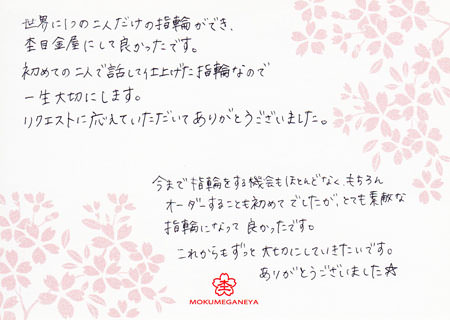 世界に1つの二人だけの指輪ができ、
杢目金屋にして良かったです。
初めての二人で話して仕上げた指輪なので
一生大切にします。
リクエストに応えていただいてありがとうございました。
今まで指輪をする機会もほとんどなく、もちろん
オーダーすることも初めてでしたが、とても素敵な
指輪になって良かったです。
これからもずっと大切にしていきたいです。
ありがとうございました☆
杢
MOKUMEGANEYA